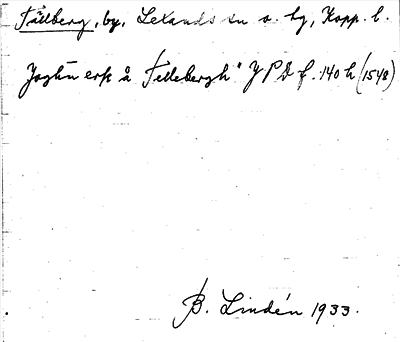 Tällberg, by, Leksands sn o. hg, Kopp. l.
Joghūn erk å Tellebergh" JPD f. 140 h (1548)
B. Lindén 1933.